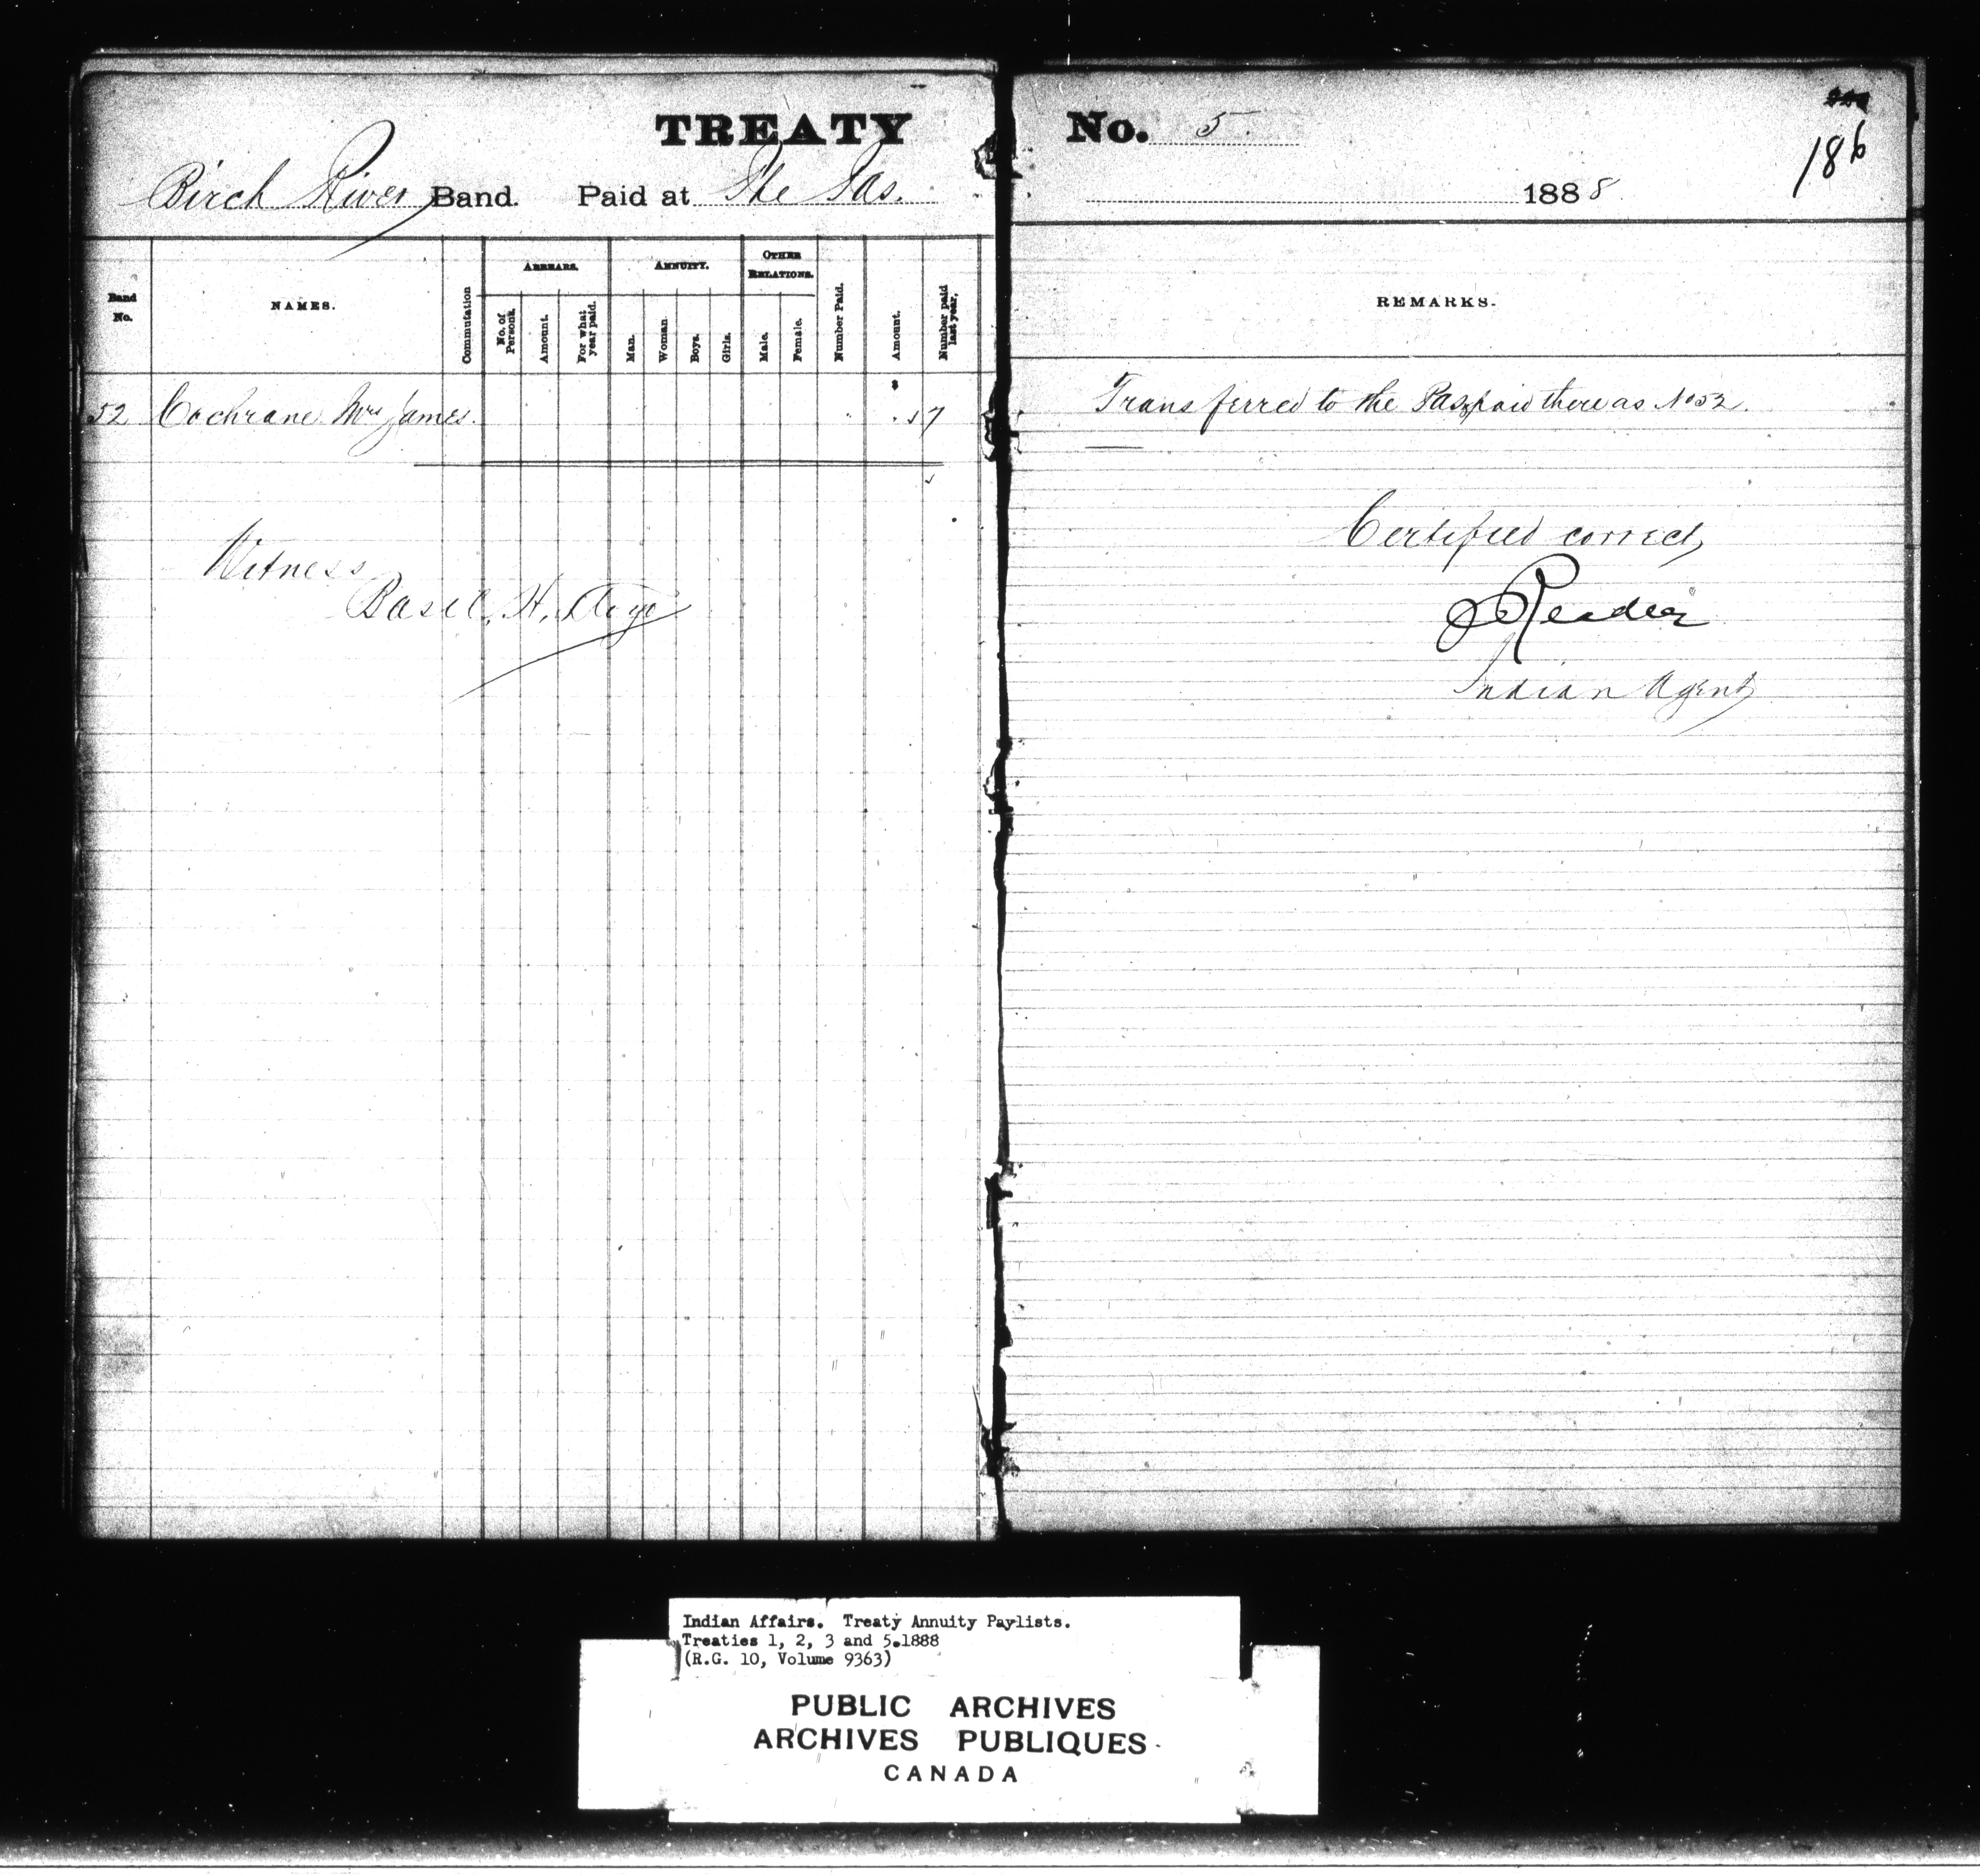 TREATY No. 5.
186
Birch River Band. Paid at The Pas. 1888
Band No.
NAMES.
Commutation
ARREARS.
No. of Persons.
Amount.
For what year paid.
ANNUITY.
Man.
Woman
Boys.
Girls.
OTHER RELATIONS.
Male.
Female.
Number Paid.
Amount.
Number paid last year.
REMARKS.
52 Cochrane Mrs James. 7 Transferred to the Pas & paid there as No 52.
Witness
Basil. H.
Certified correct
Reader
Indian Agent
Indian Affairs. Treaty Annuity Paylists.
Treaties 1, 2, 3 and 5.1888
(R.G. 10, Volume 9363)
PUBLIC ARCHIVES
ARCHIVES PUBLIQUES
CANADA